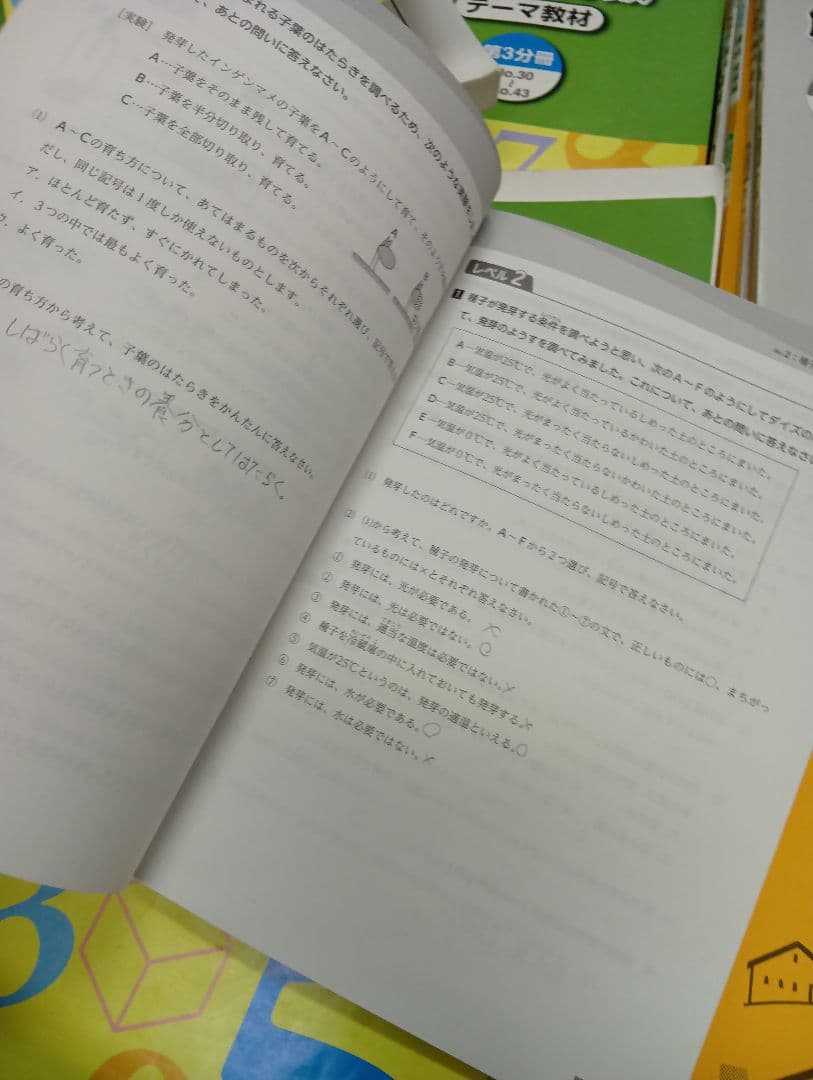 テーマ教材
第3分冊
No.30
〜
No.43
れる子葉のはたらきを調べるため、次のような実験を
て、あとの問いに答えなさい。
[実験] 発芽したインゲンマメの子葉をA〜Cのようにして育て、
A…子葉をそのまま残して育てる。
B…子葉を半分切り取り、育てる。
C…子葉を全部切り取り、育てる。
A
B
(1) A〜Cの育ち方について、あてはまるものを次からそれぞれ選び、記号で
だし、同じ記号は1度しか使えないものとします。
ア．ほとんど育たず、すぐにかれてしまった。
イ．3つの中では最もよく育った。
ウ．よく育った。
の育ち方から考えて、子葉のはたらきをかんたんに答えなさい。
しばらく育つときの養分としてはたらく。
レベル2
1 種子が発芽する条件を調べようと思い、次のA〜Fのようにしてダイズの
じょうけん
て、発芽のようすを調べてみました。これについて、あとの問いに答えなさい
A…気温が25℃で、光がよく当たっているしめった土のところにまいた。
B…気温が25℃で、光がよく当たっているかわいた土のところにまいた。
C…気温が25℃で、光がまったく当たらないしめった土のところにまいた。
D…気温が25℃で、光がまったく当たらないかわいた土のところにまいた。
E…気温が0℃で、光がよく当たっているしめった土のところにまいた。
F…気温が0℃で、光がまったく当たらないしめった土のところにまいた。
(1) 発芽したのはどれですか。A〜Fから2つ選び、記号で答えなさい。
(2) (1)から考えて、種子の発芽について書かれた①〜⑦の文で、正しいものには○、まちがっ
ているものには×とそれぞれ答えなさい。
① 発芽には、光が必要である。 ×
② 発芽には、光は必要ではない。 ○
③ 発芽には、適当な温度は必要ではない。 ×
④ 種子を冷蔵庫の中に入れておいても発芽する。 ×
⑤ 気温が25℃というのは、発芽の適温といえる。 ○
⑥ 発芽には、水が必要である。 ○
⑦ 発芽には、水は必要ではない。 ×